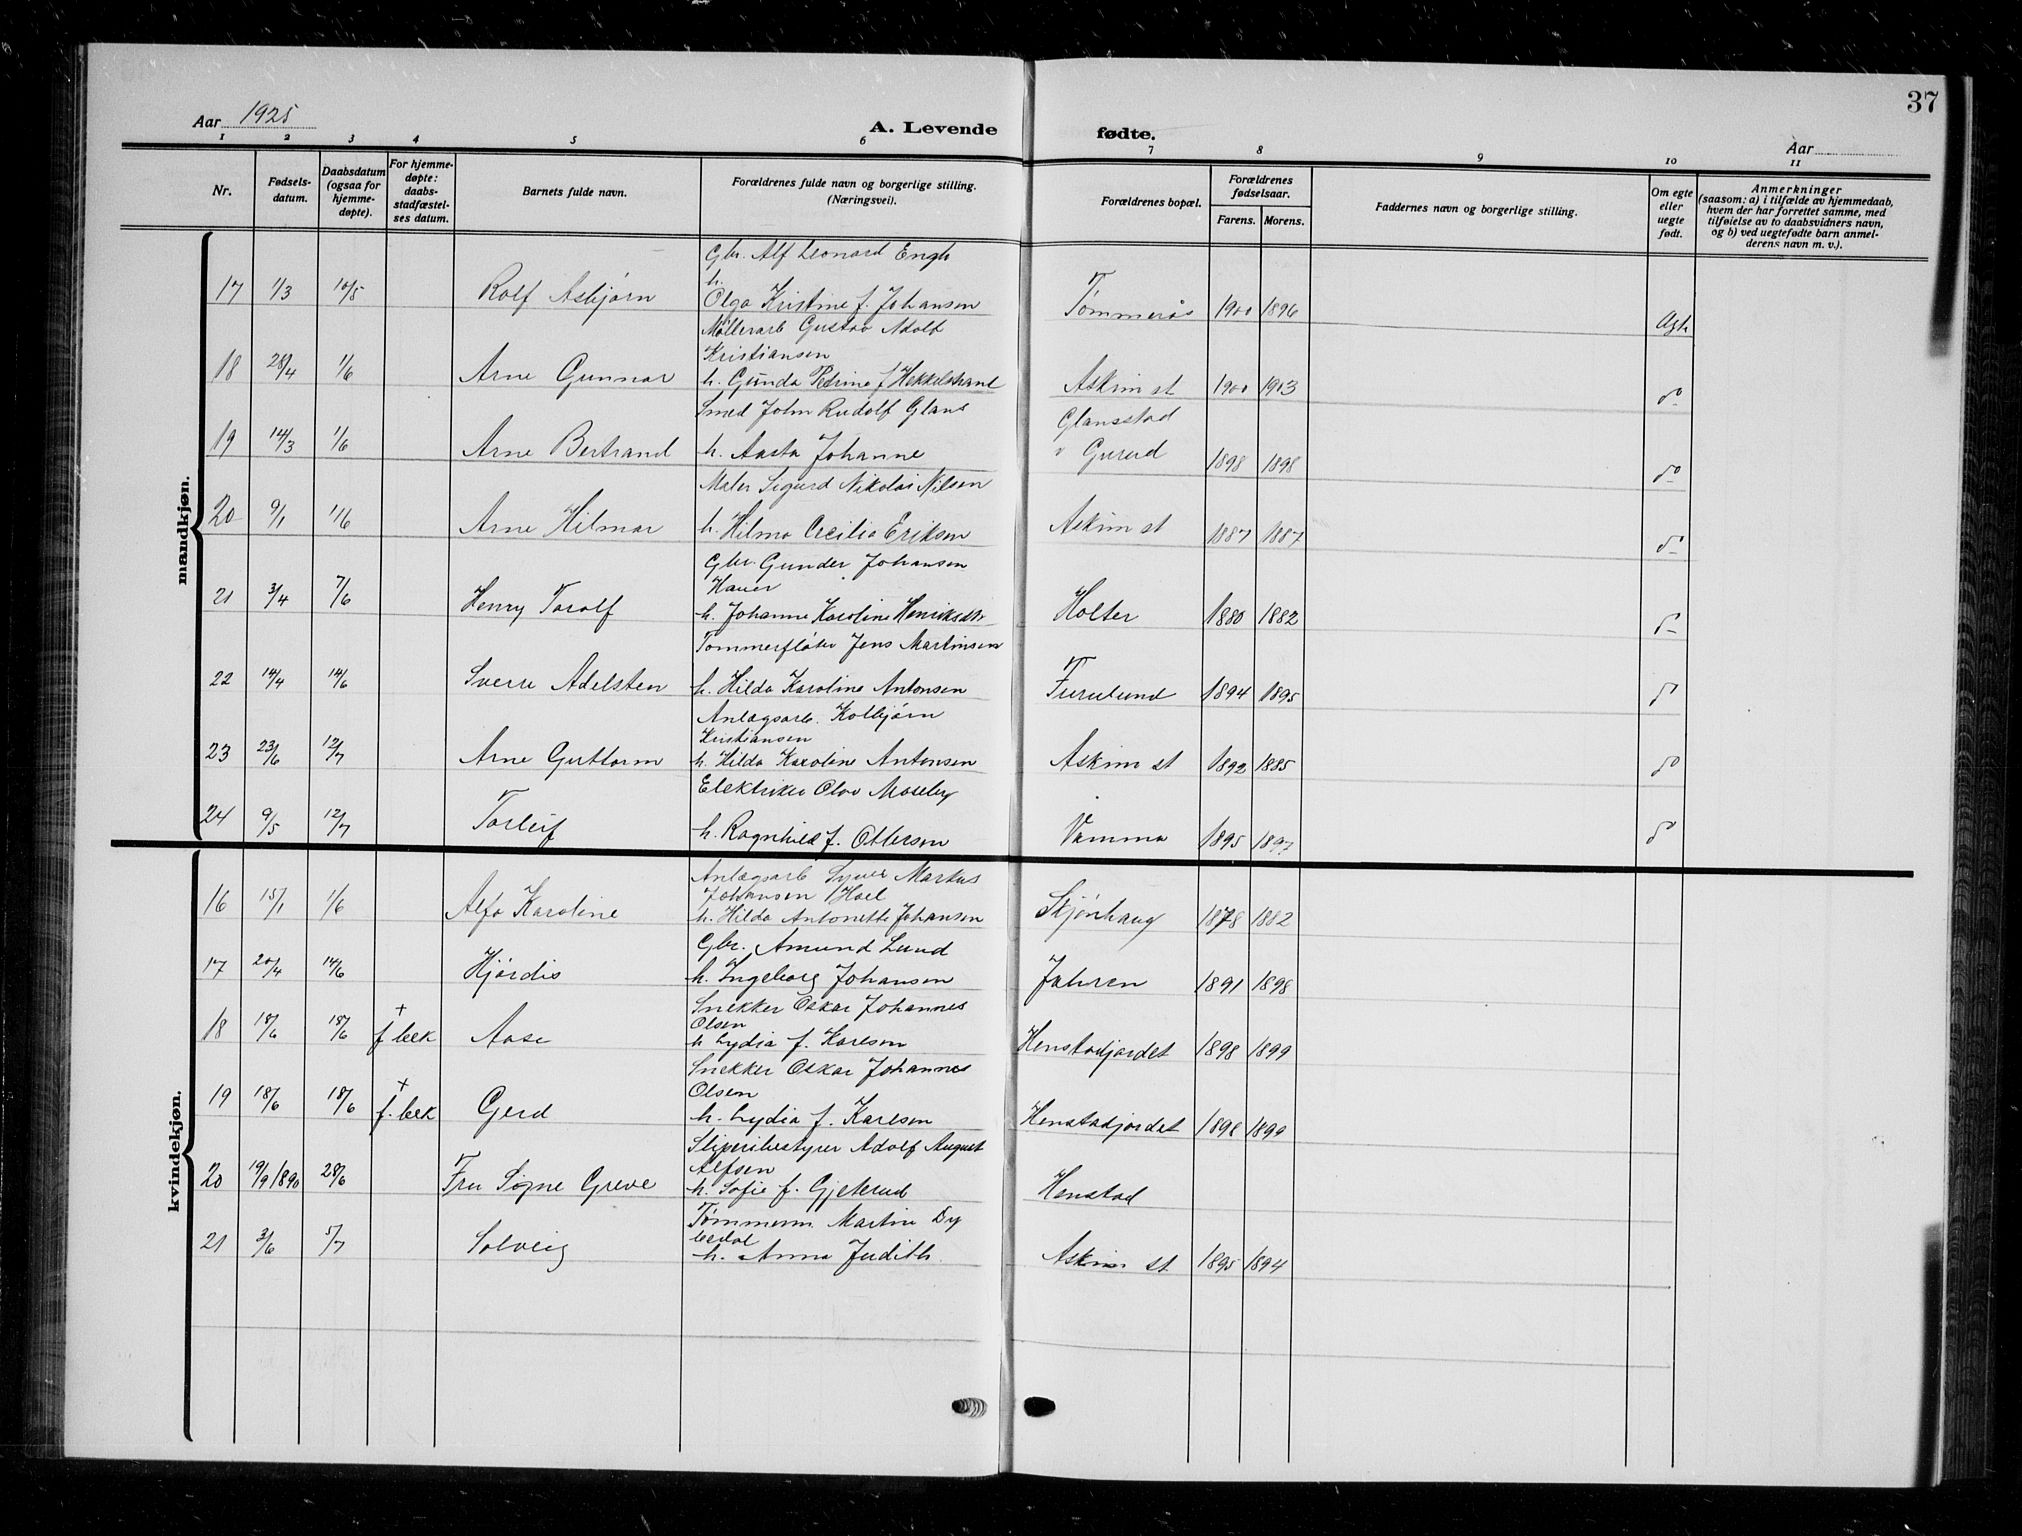 37
Aar 1925
A. Levende fødte.
Aar
1 2 3 4 5 6 7 8 9 10 11
Nr.
Fødsels-
datum.
Daabsdatum
(ogsaa for
hjemme-
døpte).
For hjemme-
døpte:
daabs-
stadfæstel-
ses datum.
Barnets fulde navn.
Forældrenes fulde navn og borgerlige stilling.
(Næringsvei).
Forældrenes bopæl.
Forældrenes
fødselsaar.
Farens. Morens.
Faddernes navn og borgerlige stilling.
Om egte
eller
uegte
født.
Anmerkninger
(saasom: a) i tilfælde av hjemmedaab,
hvem der har forrettet samme, med
tilføielse av to daabsvidners navn,
og b) ved uegtefødte barn anmel-
derens navn m. v.).
mandkjøn.
Gbr. Alf Leonard Engh
h.
17 1/3 10/5 Rolf Asbjørn Olga Kristine f. Johansen Tømmerås 1900 1896 Agte
Møllerarb Gustav Adolf
Kristiansen
18 28/4 1/6 Arne Gunnar h. Gunda Petrine f Hekkelstrand Askim st 1900 1903 do
Smed John Rudolf Glans Glansstad
19 14/3 1/6 Arne Bertrand h. Aasta Johanne v Gurud 1898 1898 do
Maler Sigurd Nikolai Nilsen
20 9/1 11/6 Arne Hilmar h. Hilma Cecilie Eriksen Askim st 1887 1887 do
Gbr. Gunder Johansen
Haner
21 3/4 7/6 Henry Torolf h. Johanne Karoline Henriksdtr Holter 1880 1882 do
Tømmerfløter Jens Martinsen
22 14/4 14/6 Sverre Adelsten h. Hilda Karoline Antonsen Furulund 1894 1895 do
Anlægsarb. Kolbjørn
Kristiansen
23 23/6 12/7 Arne Guttorm h. Hilda Karoline Antonsen Askim st 1892 1885 do
Elektriker Olav Moseberg
24 9/5 12/7 Torleif h. Ragnhild f. Ottersen Vamma 1895 1897 do
kvindekjøn.
Anlægsarb Syver Markus
Johansen Hoel
16 15/1 1/6 Alfa Karoline h. Hilda Antonette Johansen Skjønhaug 1878 1882
Gbr. Amund Lund
17 20/4 14/6 Hjørdis h. Ingeborg Johansen Jahren 1891 1898
Snekker Oskar Johannes
Olsen
18 18/6 18/6 + f bek Aase h Lydia f. Karlsen Henstadjordet 1898 1899
Snekker Oskar Johannes
Olsen
19 18/6 18/6 + f. bek Gerd h. Lydia f. Karlsen Henstadjordet 1898 1899
Sliperibestyrer Adolf August
Alfsen
20 19/9 1890 28/6 Fru Signe Greve h. Sofie f. Gjeterud Henstad
Tømmerm. Martin Dy
bedal
21 3/6 5/7 Solveig h. Anna Judith. Askim st 1895 1894